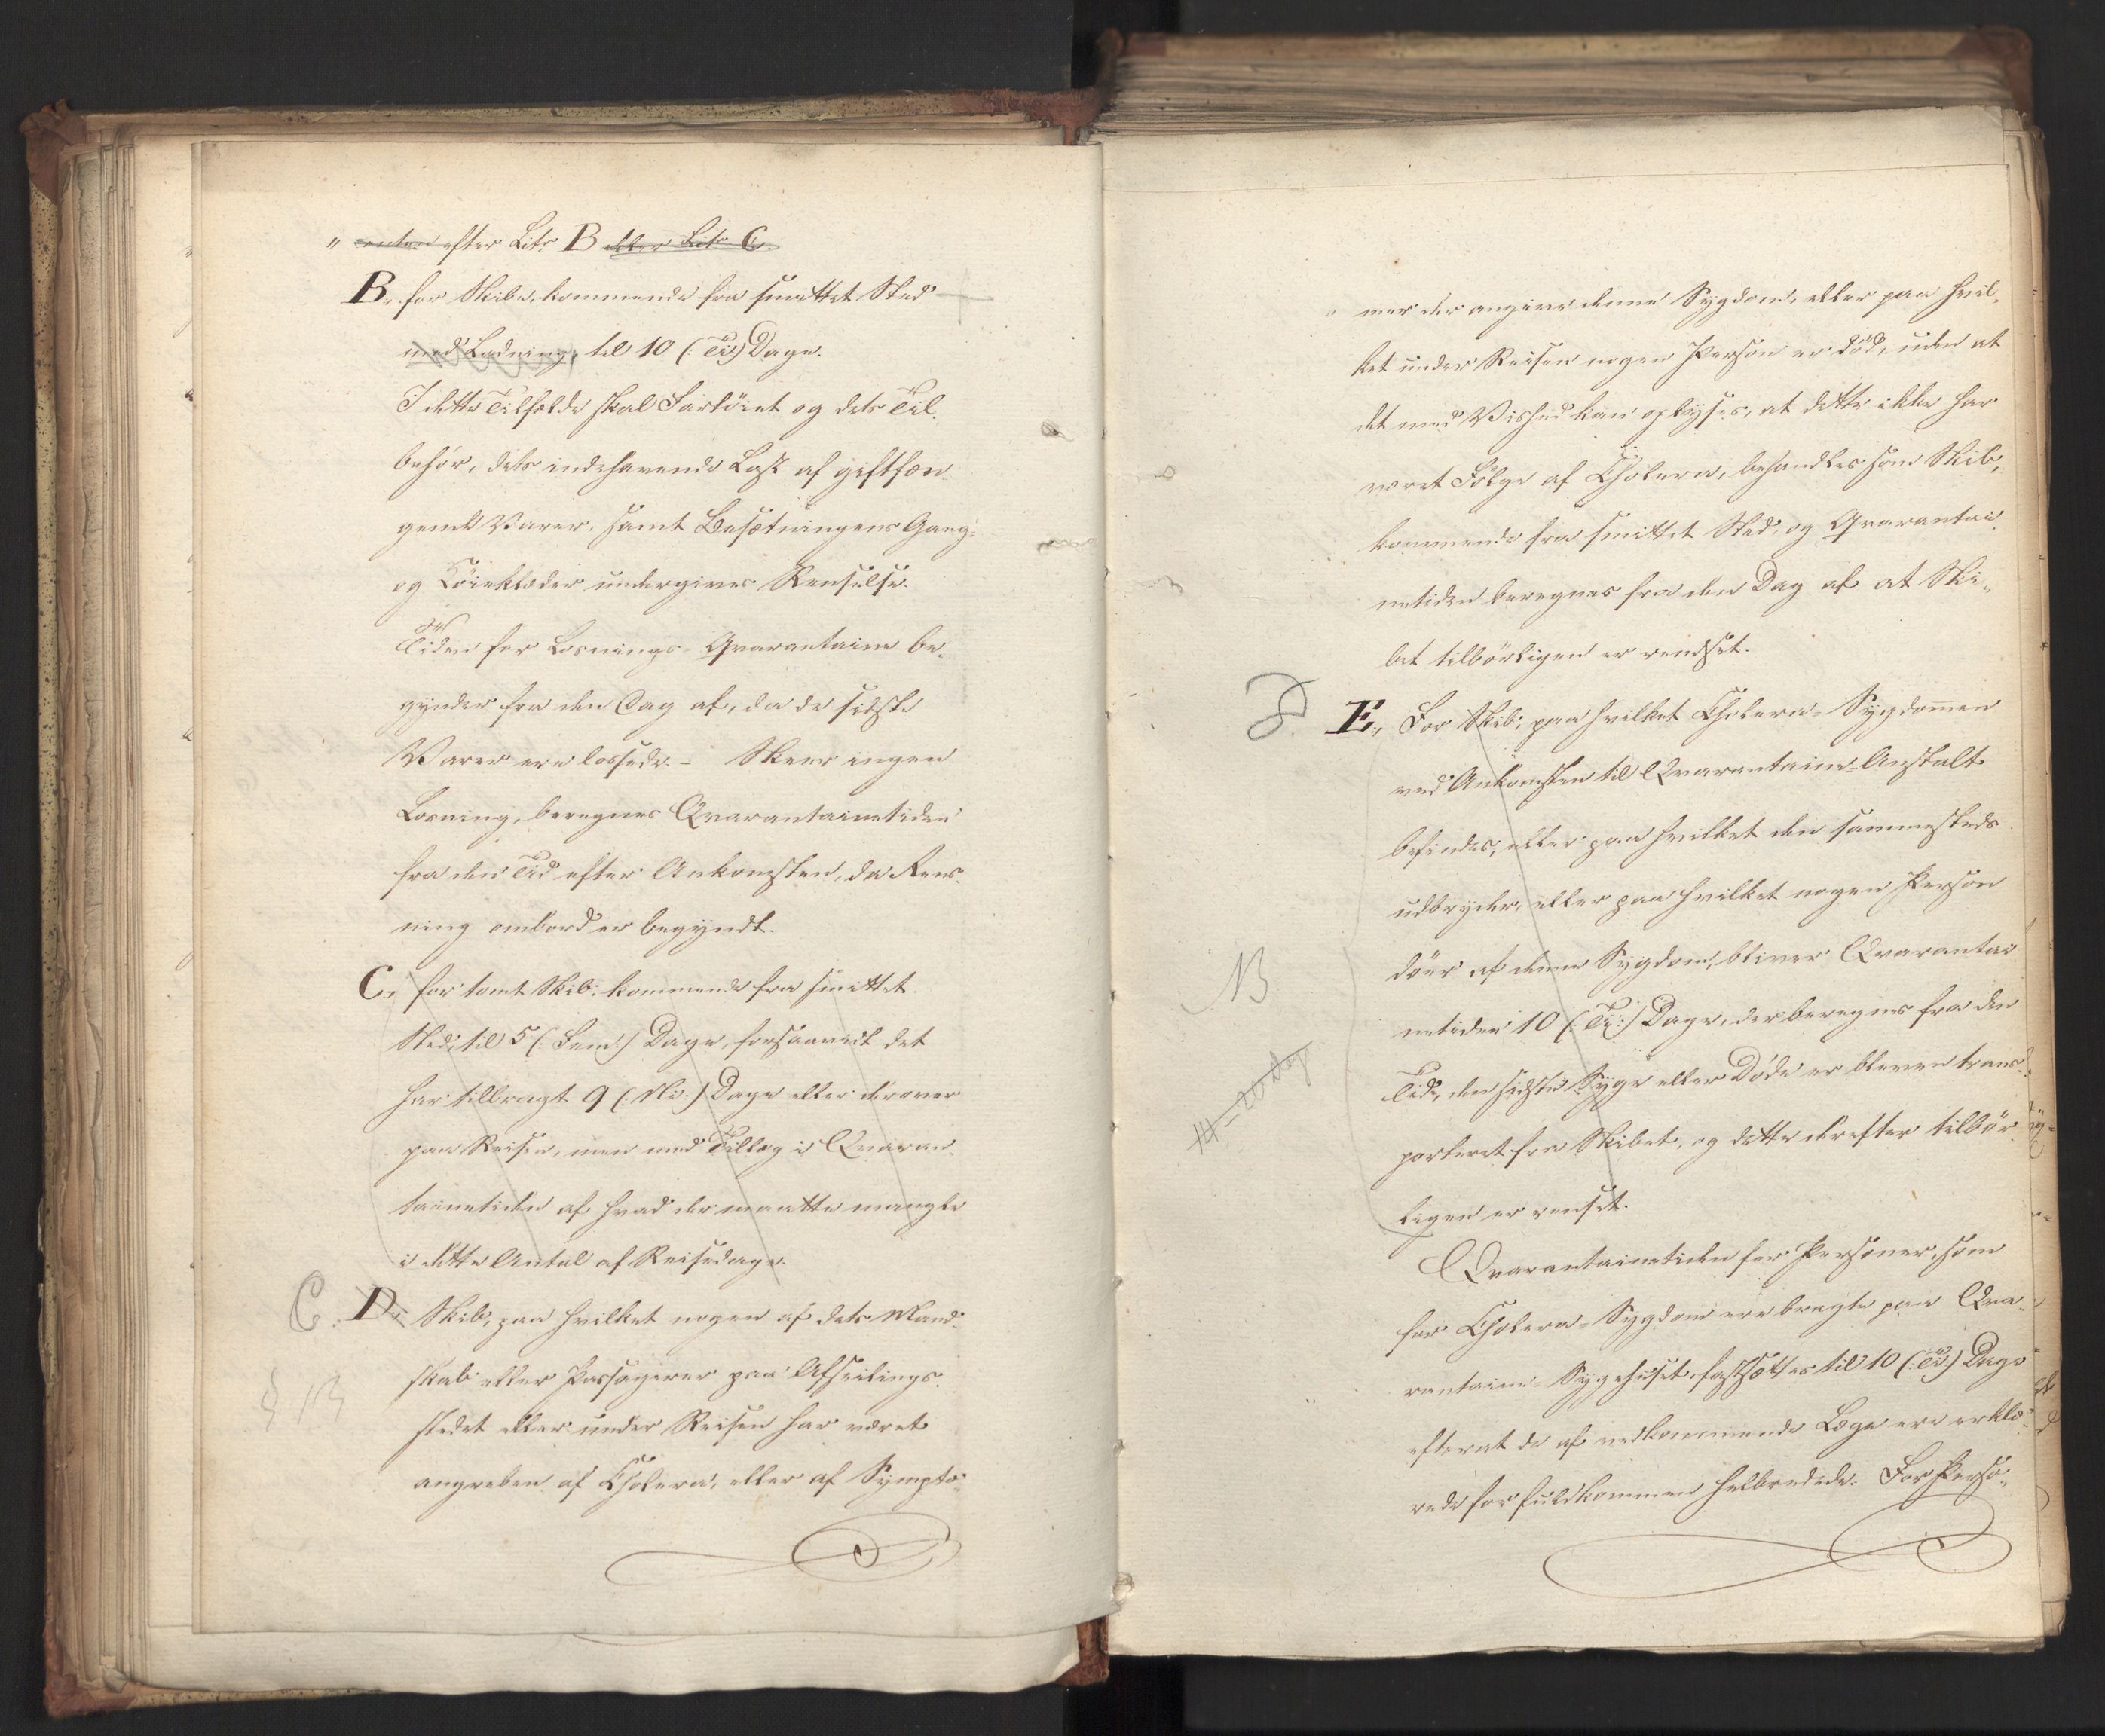 " enten efter Litr B eller Litr C.
B, for Skibe, kommende fra smittet Sted
med Ladning, til 10 (: Ti:) Dage.
I dette Tilfælde skal Fartöiet og dets Til-
behör, dets indehavende Last af giftfæn-
gende Varer, samt Besætningens Gang-
og Köieklæder undergives Renselse.
Tiden for Losnings-Qvarantaine be-
gynder fra den Dag af, da de sidste
Varer ere lossede. - Skeer ingen
Losning, beregnes Qvarantainetiden
fra den Tid efter Ankomsten, da Rens-
ning ombord er begyndt.
C, for tomt Skib, kommende fra smittet
Sted, til 5 (: Fem:) Dage, forsaavidt det
har tilbragt 9 (: Ni:) Dage eller derover
paa Reisen, men med Tillæg i Qvaran-
tainetiden af hvad der maatte mangle
i dette Antal af Reisedage.
C. D, Skib, paa hvilket nogen af dets Mand-
skab eller Passagerer paa Afseilings-
§ 13
stedet eller under Reisen har været
angreben af Cholera, eller af Sympto-
" mer der angive denne Sygdom, eller paa hvil-
ket under Reisen nogen Person er död, uden at
det med Vished kan oplyses, at dette ikke har
været Fölge af Cholera, behandles som Skib,
kommende fra smittet Sted, og Qvarantai-
netiden beregnes fra den Dag af at Ski-
bet tilbörligen er rendset.
D. E, For Skib, paa hvilket Cholera-Sygdommen
ved Ankomsten til Qvarantaine-Anstalt
befindes, eller paa hvilket den sammesteds
udbryder, eller paa hvilket nogen Person
NB
döer af denne Sygdom, bliver Qvarantai-
netiden 10 (: Ti:) Dage, der beregnes fra den
Tid, den sidste Syge eller Döde er bleven trans-
porteret fra Skibet, og dette derefter tilbör-
ligen er renset.
Qvarantainetiden for Personer, som
for Cholera-Sygdom ere bragte paa Qva-
rantaine-Sygehuset, fastsættes til 10 (: Ti:) Dage
efterat de af vedkommende Læge ere erklæ-
rede for fuldkommen helbredede. For Perso-